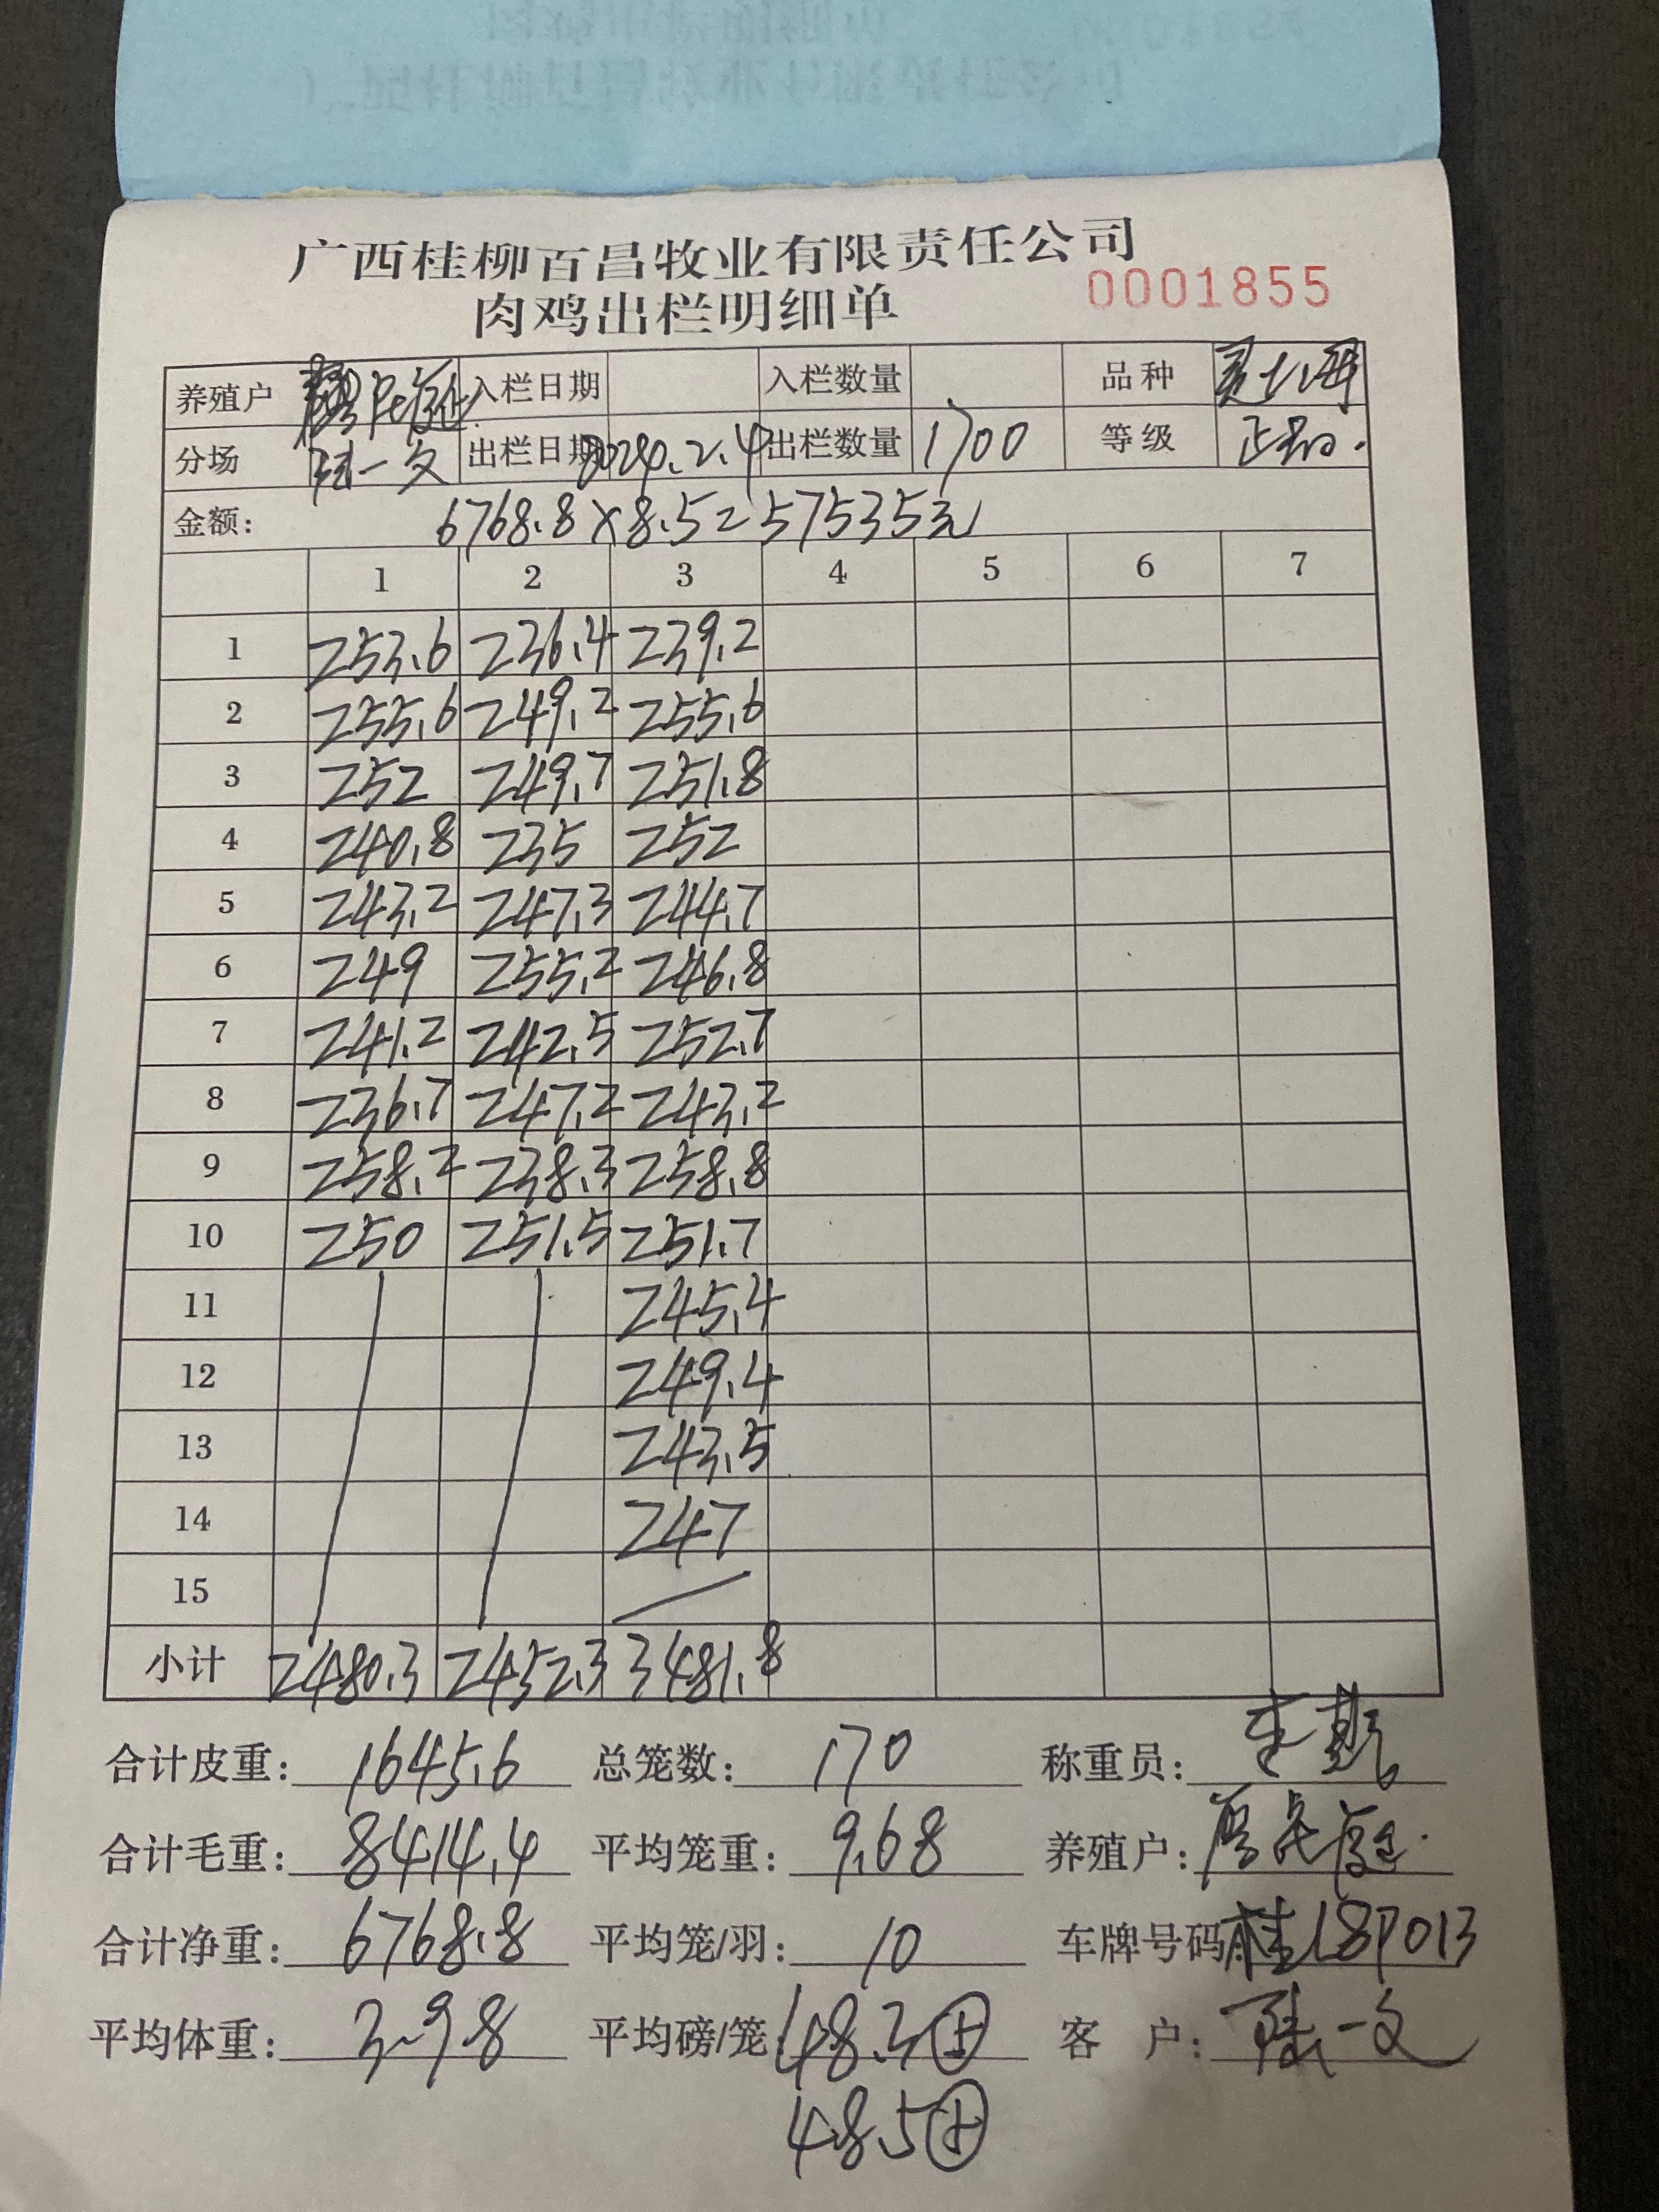 广西桂柳百昌牧业有限责任公司
肉鸡出栏明细单 0001855
养殖户 入栏日期 入栏数量 品种
分场 陆一文 出栏日期 2024.2.4 出栏数量 1700 等级
金额: 6768.8×8.5=57535元
1 2 3 4 5 6 7
1 253.6 236.4 239.2
2 255.6 249.2 255.6
3 252 249.7 251.8
4 240.8 235 252
5 243.2 247.3 244.7
6 249 255.2 246.8
7 241.2 242.5 252.7
8 236.7 247.2 243.2
9 258.2 238.3 258.8
10 250 251.5 251.7
11 245.4
12 249.4
13 243.5
14 247
15
小计 2480.3 2452.3 3481.8
合计皮重: 1645.6 总笼数: 170 称重员:
合计毛重: 8414.4 平均笼重: 9.68 养殖户:
合计净重: 6768.8 平均笼/羽: 10 车牌号码 桂L8P013
平均体重: 3.98 平均磅/笼 48.3 客 户: 陆一文
48.5